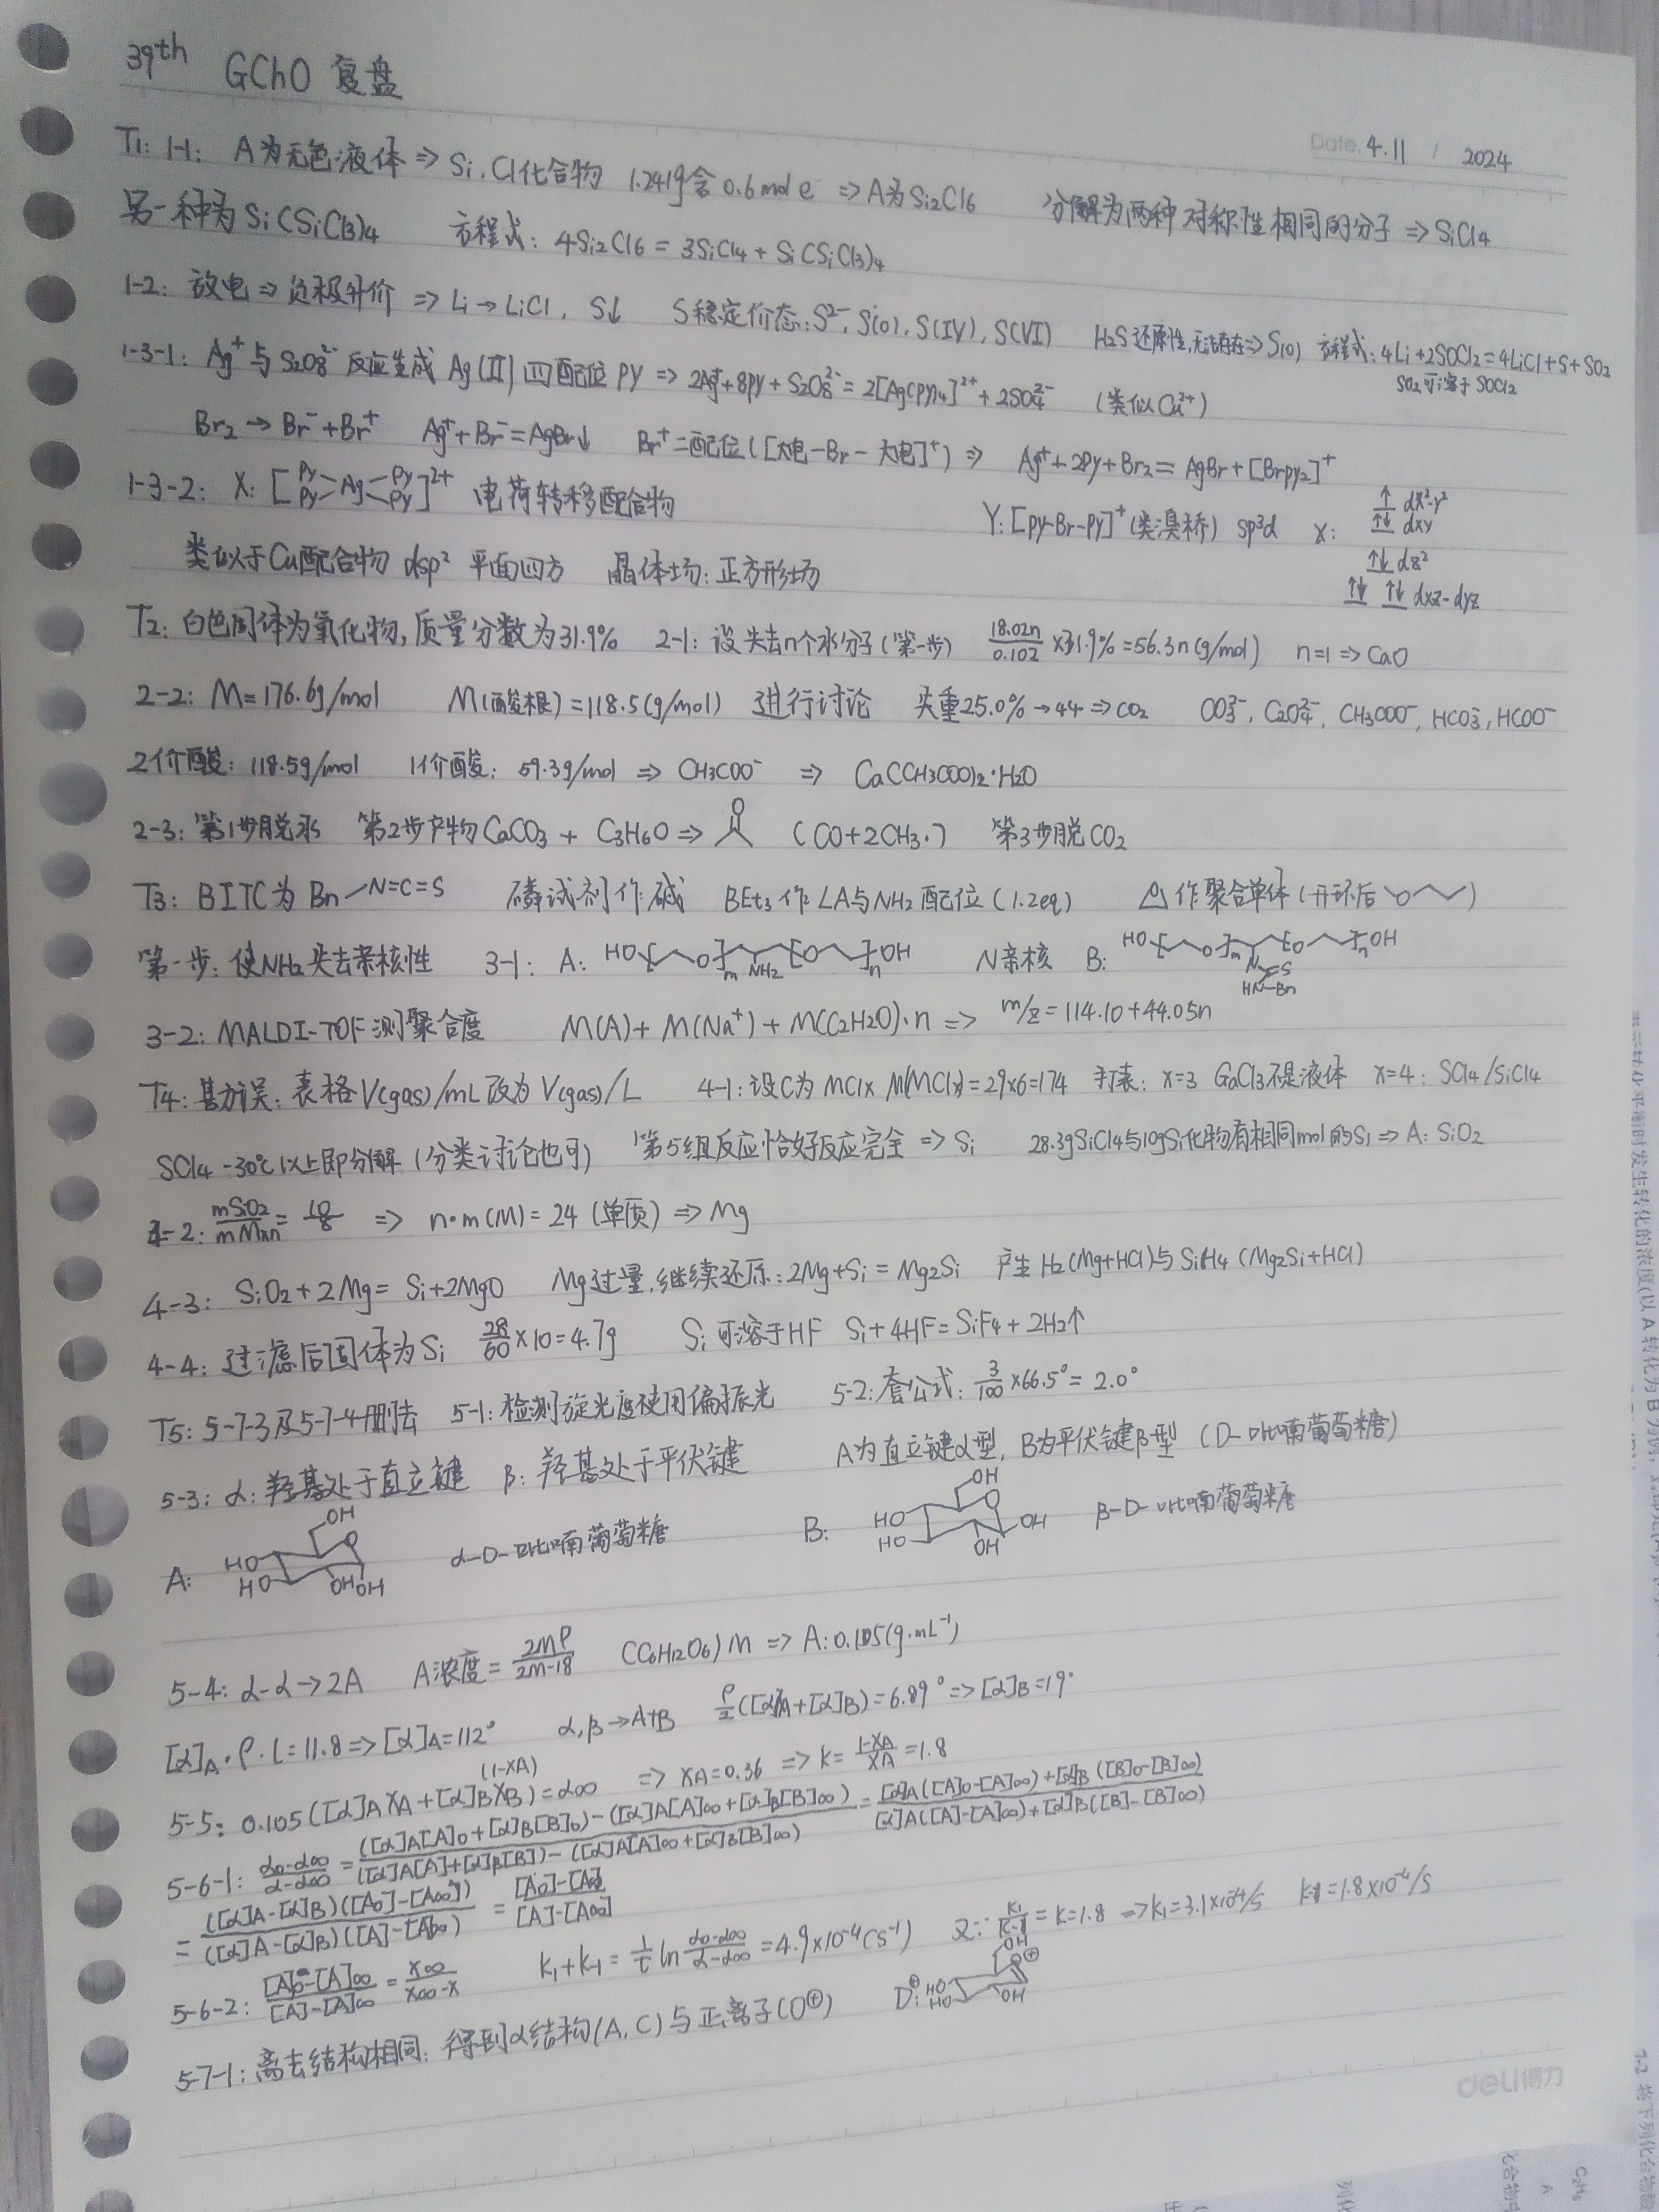 39th GChO 复盘
Date. 4.11 / 2024
T1: 1-1: A为无色液体 ⇒ Si、Cl化合物 1.2419含0.6mol e⁻ ⇒ A为Si2Cl6 分解为两种对称性相同的分子 ⇒ SiCl4
另一种为Si(SiCl3)4 方程式: 4Si2Cl6 = 3SiCl4 + Si(SiCl3)4
1-2: 放电 ⇒ 负极升价 ⇒ Li → LiCl, S↓ S稳定价态: S²⁻, S(0), S(IV), S(VI) H2S还原性,无法存在 ⇒ S(0) 方程式: 4Li+2SOCl2=4LiCl+S+SO2
SO2可溶于SOCl2
1-3-1: Ag⁺与S2O8²⁻反应生成Ag(II) 四配位py ⇒ 2Ag⁺+8py+S2O8²⁻=2[Ag(py)4]²⁺+2SO4²⁻ (类似Cu²⁺)
Br2 → Br⁻+Br⁺ Ag⁺+Br⁻=AgBr↓ Br⁺二配位([大电-Br-大电]⁺) ⇒ Ag⁺+2py+Br2=AgBr+[Brpy2]⁺
1-3-2: X: [py py >Ag< py py]²⁺ 电荷转移配合物 Y: [py-Br-py]⁺(类溴桥) sp³d X: ↑ dx²-y²
↑↓ dxy
类似于Cu配合物 dsp² 平面四方 晶体场: 正方形场 ↑↓ dz²
↑↓ ↑↓ dxz-dyz
T2: 白色固体为氧化物, 质量分数为31.9% 2-1: 设失去n个水分子(第一步) 18.02n/0.102 ×31.9%=56.3n(g/mol) n=1 ⇒ CaO
2-2: M=176.6g/mol M(酸根)=118.5(g/mol) 进行讨论 失重25.0% → 44 ⇒ CO2 CO3²⁻, C2O4²⁻, CH3COO⁻, HCO3⁻, HCOO⁻
2价酸: 118.5g/mol 1价酸: 59.3g/mol ⇒ CH3COO⁻ ⇒ Ca(CH3COO)2·H2O
2-3: 第1步脱水 第2步产物CaCO3 + C3H6O ⇒ O (CO+2CH3·) 第3步脱CO2
T3: BITC为 Bn-N=C=S 磷试剂作碱 BEt3作LA与NH2配位(1.2eq) O作聚合单体(开环后 O )
第一步: 使NH2失去亲核性 3-1: A: HO[ O]m NH2 [O ]n OH N亲核 B: HO[ O]m [O ]n OH
N S
HN-Bn
3-2: MALDI-TOF测聚合度 M(A)+M(Na⁺)+M(C2H2O)·n ⇒ m/z=114.10+44.05n
T4: 勘误: 表格V(gas)/mL改为V(gas)/L 4-1: 设C为MClx M(MClx)=29×6=174 打表: x=3 GaCl3不是液体 x=4: SCl4/SiCl4
SCl4 -30℃以上即分解(分类讨论也可) 第5组反应恰好反应完全 ⇒ Si 28.3gSiCl4与10gSi化物有相同mol的Si ⇒ A: SiO2
4-2: mSiO2/mMxn = 10/8 ⇒ n·m(M)=24 (单质) ⇒ Mg
4-3: SiO2+2Mg=Si+2MgO Mg过量,继续还原: 2Mg+Si=Mg2Si 产生H2(Mg+HCl)与SiH4(Mg2Si+HCl)
4-4: 过滤后固体为Si 28/60×10=4.7g Si可溶于HF Si+4HF=SiF4+2H2↑
T5: 5-7-3及5-7-4删去 5-1: 检测旋光度使用偏振光 5-2: 套公式: 3/100×66.5°=2.0°
5-3: α: 羟基处于直立键 β: 羟基处于平伏键 A为直立键α型, B为平伏键β型 (D-吡喃葡萄糖)
A: OH O HO HO OH OH α-D-吡喃葡萄糖 B: OH O HO HO OH OH β-D-吡喃葡萄糖
5-4: α-α→2A A浓度=2Mρ/2M-18 (C6H12O6)M ⇒ A: 0.105(g·mL⁻¹)
[α]A·ρ·l=11.8 ⇒ [α]A=112° α,β→A+B ρ/2([α]A+[α]B)=6.89° ⇒ [α]B=19°
(1-XA)
5-5: 0.105([α]AXA+[α]BXB)=α∞ ⇒ XA=0.36 ⇒ K=1-XA/XA=1.8
5-6-1: α0-α∞/α-α∞ = ([α]A[A]0+[α]B[B]0)-([α]A[A]∞+[α]B[B]∞)/([α]A[A]+[α]B[B])-([α]A[A]∞+[α]B[B]∞) = [α]A([A]0-[A]∞)+[α]B([B]0-[B]∞)/[α]A([A]-[A]∞)+[α]B([B]-[B]∞)
= ([α]A-[α]B)([A0]-[A∞])/([α]A-[α]B)([A]-[A]∞) = [A0]-[A∞]/[A]-[A∞]
5-6-2: [A]0-[A]∞/[A]-[A]∞ = x∞/x∞-x k1+k-1=1/t ln α0-α∞/α-α∞=4.9×10⁻⁴(s⁻¹) 又∵ k1/k-1=K=1.8 ⇒ k1=3.1×10⁻⁴/s k-1=1.8×10⁻⁴/s
5-7-1: 离去结构相同: 得到α结构(A, C)与正离子(O⊕) D: OH O⊕ HO HO OH
deli得力